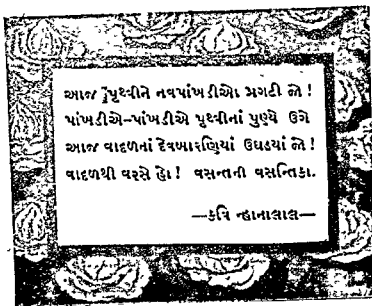 આજ પૃથ્વીને નવપાંખડીઓ પ્રગટી જો !
પાંખડીએ-પાંખડીએ પૃથ્વીનાં પુણ્યે ઉગે
આજ વાદળનાં દેવબારણિયાં ઉઘડયાં જો !
વાદળથી વરસે હો ! વસન્તની વસન્તિકા.
—કવિ ન્હાનાલાલ—